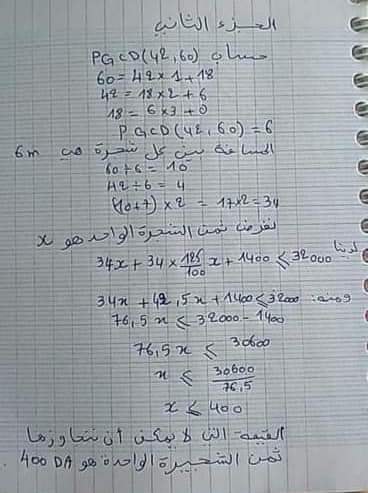 الجزء الثاني
حساب PGCD(42,60)
60 = 42 × 1 + 18
42 = 18 × 2 + 6
18 = 6 × 3 + 0
PGCD(42, 60) = 6
المسافة بين كل شجرة هي 6m
60 ÷ 6 = 10
42 ÷ 6 = 4
(10+7) × 2 = 17×2 = 34
نفرض ثمن الشجرة الواحدة هو x
لدينا 34x + 34 × 125/100 x + 1400 ⩽ 32000
ومنه: 34x + 42,5x + 1400 ⩽ 32000
76,5x ⩽ 32000 - 1400
76,5x ⩽ 30600
x ⩽ 30600/76,5
x ⩽ 400
القيمة التي لا يمكن أن نتجاوزها
ثمن الشجيرة الواحدة هو 400 DA.